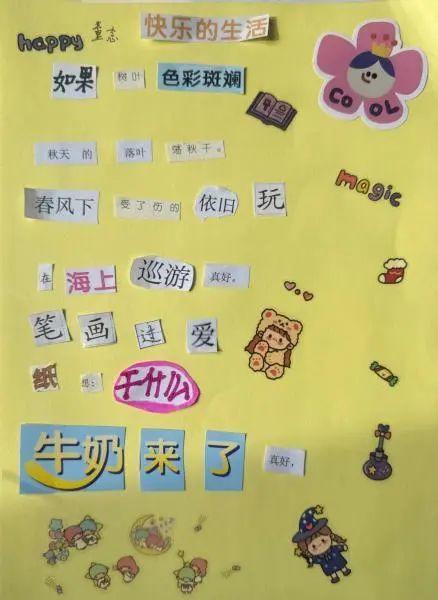 happy 童恋 快乐的生活
如果 树叶 色彩斑斓
COOL
秋天 的 落叶 荡秋千。
magic
春风下 受了伤的 依旧 玩
在 海上 巡游 真好。
笔 画 过 爱
纸 想： 干什么
牛奶 来 了 真好，